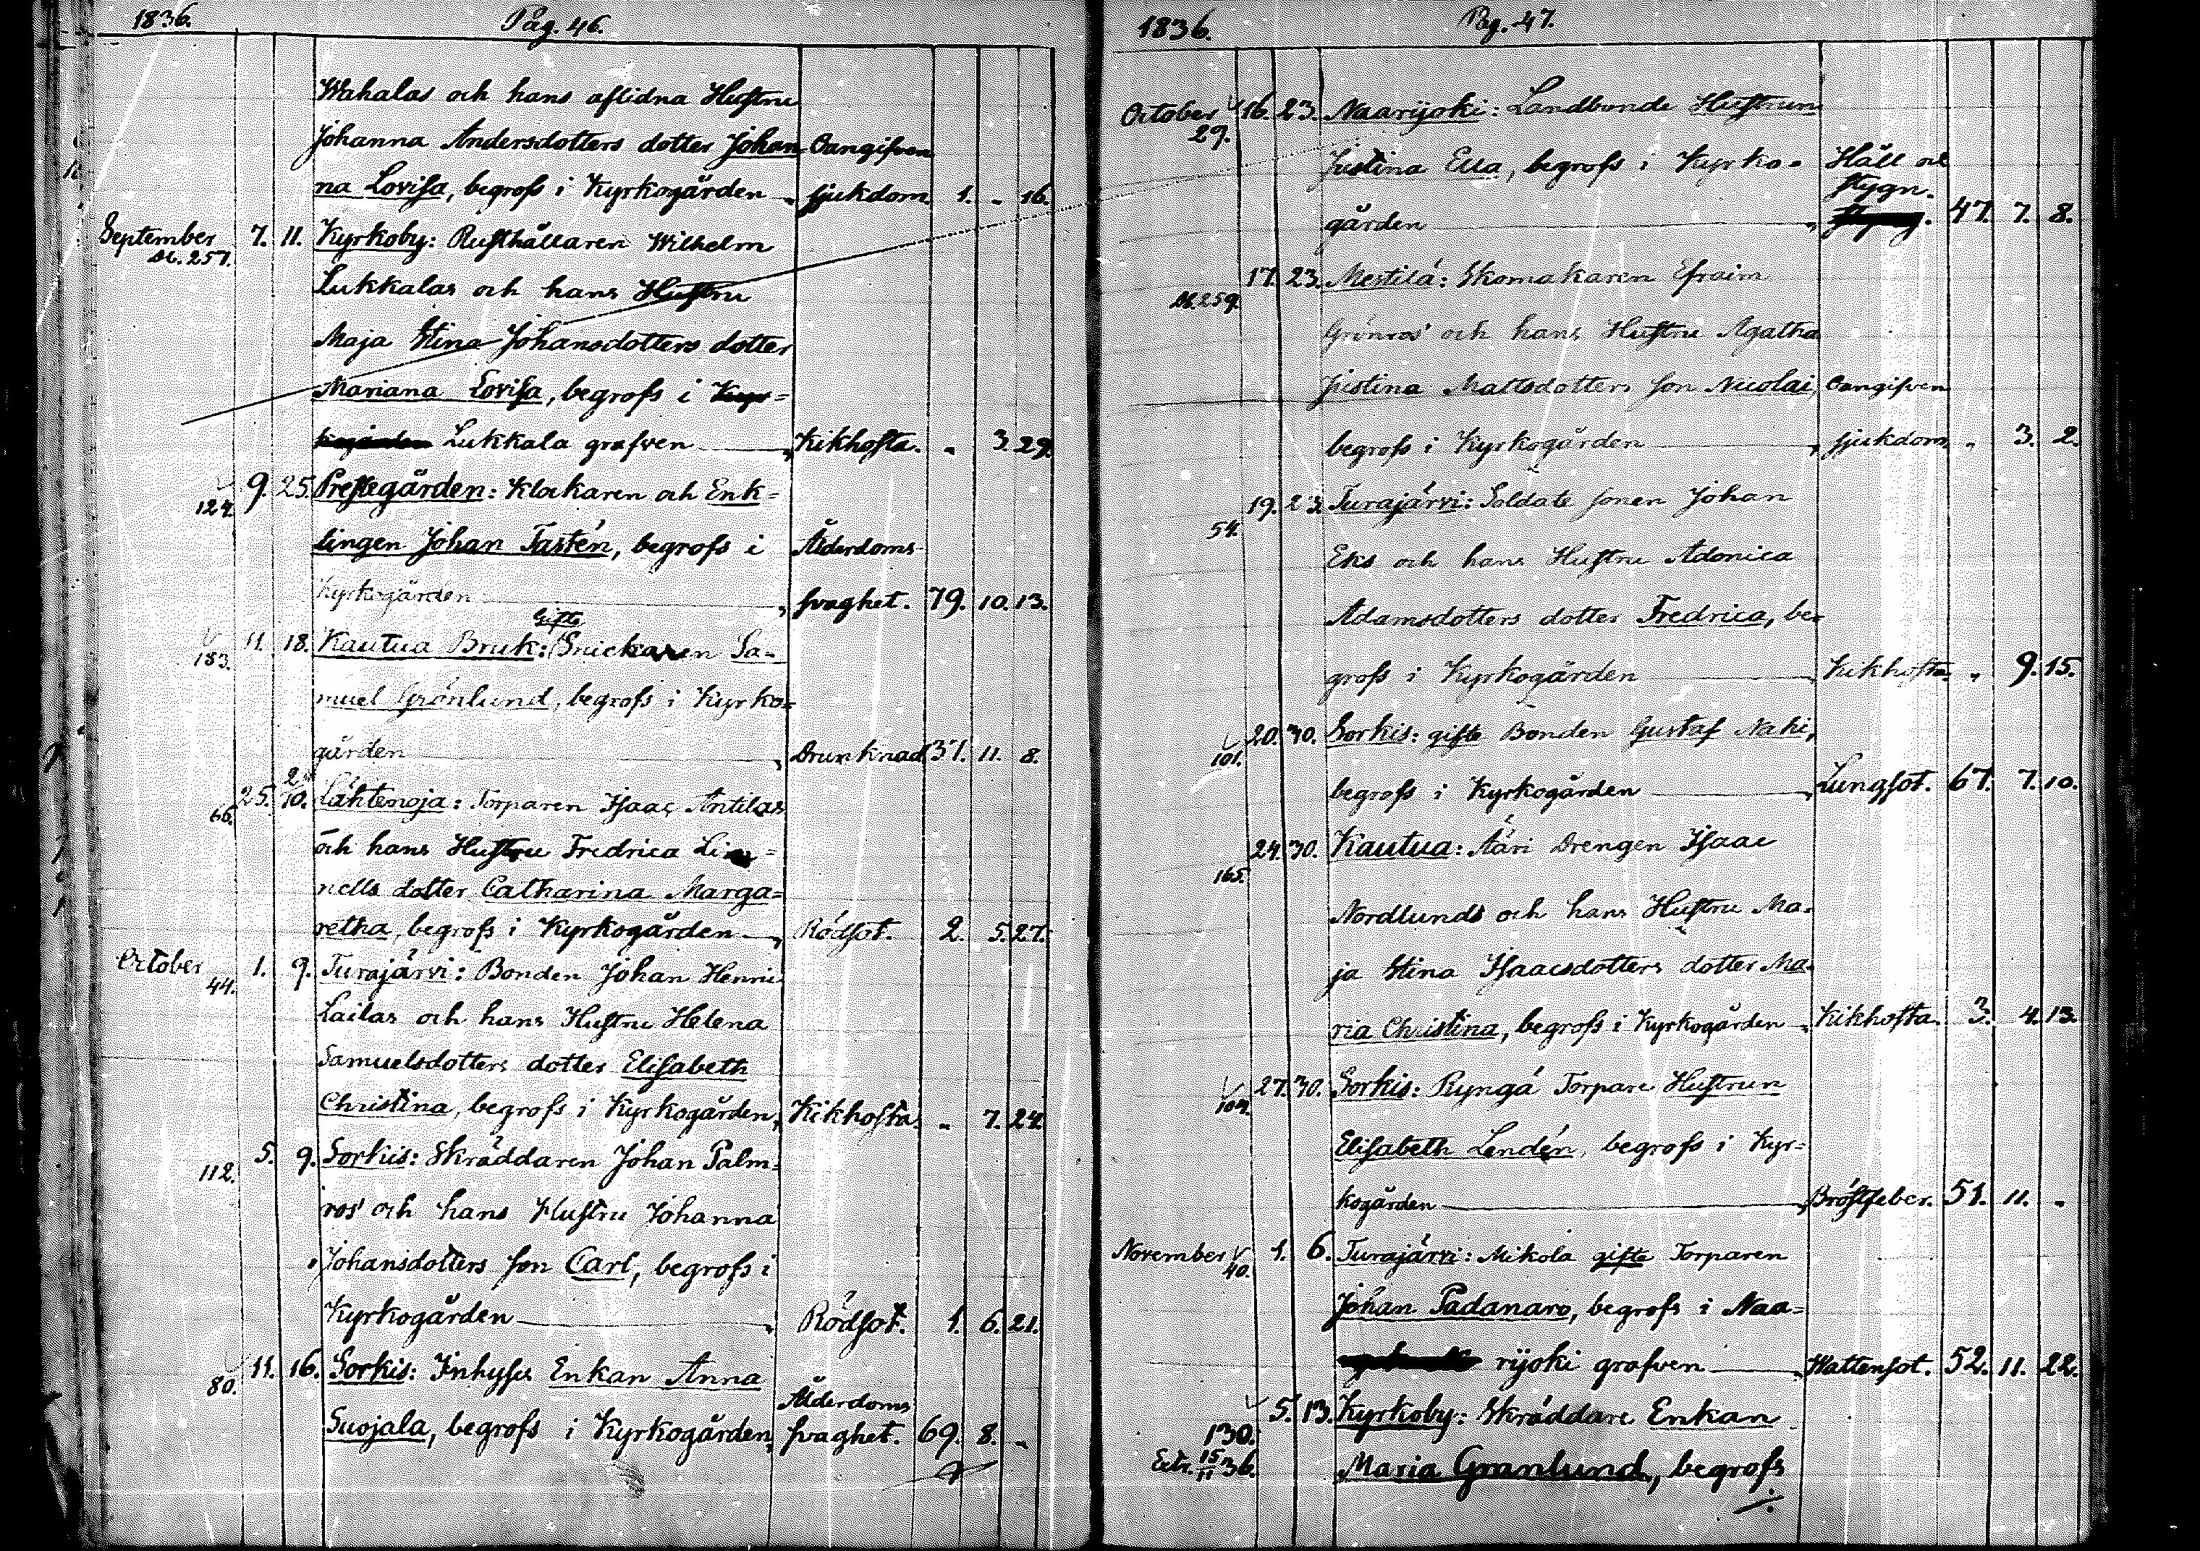 1836. Pag. 46.
Wahalas och hans aflidna Hustru
Johanna Andersdotters dotter Johan- Oangifven
na Lovisa, begrofs i Kyrkogården " sjukdom. 1. " 16.
September 7. 11. Kyrkoby: Rusthållaren Wilhelm
bl. 257. Lukkalas och hans Hustru
Maja Stina Johansdotters dotter
Mariana Lovisa, begrofs i Kyr=
kogården Lukkala grafven " Kikhosta. " 3. 29.
124. 9. 25. Prestegården: Klockaren och Enk=
lingen Johan Tastén, begrofs i Ålderdoms-
Kyrkogården " svaghet. 79. 10. 13.
183. 11. 18. Kautua Bruk: Gifte Snickaren Sa=
muel Grönlund, begrofs i Kyrko=
gården " Drunknad. 37. 11. 8.
66. 25. 2/10. Lähtenoja: Torparen Isaac Antilas
och hans Hustru Fredrica Li
nells dotter Catharina Marga=
retha, begrofs i Kyrkogården " Rödsot. 2. 5. 27.
October 1. 9. Turajärvi: Bonden Johan Henric
44. Lailas och hans Hustru Helena
Samuelsdotters dotter Elisabeth
Christina, begrofs i Kyrkogården, Kikhosta. " 7. 24.
112. 5. 9. Sorkis: Skräddaren Johan Palm=
ros' och hans Hustru Johanna
Johansdotters son Carl, begrofs i
Kyrkogården " Rödsot. 1. 6. 21.
80. 11. 16. Sorkis: Inhyses Enkan Anna
Suojala, begrofs i Kyrkogården, Ålderdoms svaghet. 69. 8. "
1836. Pag. 47.
October 16. 23. Naarijoki: Landbonde Hustrun
29. Justina Ella, begrofs i Kyrko= Håll och
gården " stygn. 47. 7. 8.
bl. 259. 17. 23. Mestilä: Skomakaren Efraim
Grönros' och hans Hustru Agatha
Justina Mattsdotters son Nicolai, Oangifven
begrofs i Kyrkogården " sjukdom. " 3. 2.
54. 19. 23. Turajärvi: Soldate sonen Johan
Eks och hans Hustru Adonica
Adamsdotters dotter Fredrica, be=
grofs i Kyrkogården " Kikhosta. " 9. 15.
101. 20. 30. Sorkis: gifte Bonden Gustaf Nahi,
begrofs i Kyrkogården " Lungsot. 67. 7. 10.
165. 24. 30. Kautua: Ääri Drengen Isaac
Nordlunds och hans Hustru Ma=
ja Stina Isaacsdotters dotter Ma=
ria Christina, begrofs i Kyrkogården " Kikhosta. 3. 4. 13.
104. 27. 30. Sorkis: Ryngä Torpare Hustrun
Elisabeth Lendén, begrofs i Kyr=
kogården " Bröstfeber. 51. 11. "
November 1. 6. Turajärvi: Mikola gifte Torparen
40. Johan Padanaro, begrofs i Naa=
rijoki grafven " Wattensot. 52. 11. 22.
130. 5. 13. Kyrkoby: Skräddare Enkan
Extr. 15/11 36. Maria Granlund, begrofs